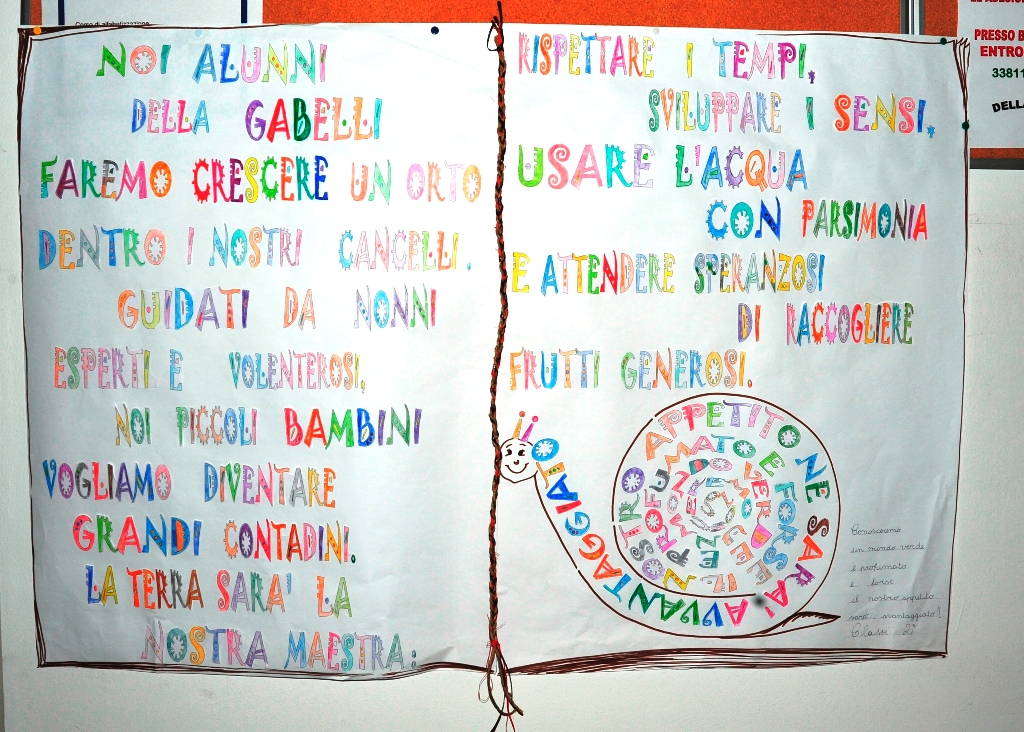 Corso di alfabetizzazione
NOI ALUNNI
DELLA GABELLI
FAREMO CRESCERE UN ORTO
DENTRO I NOSTRI CANCELLI.
GUIDATI DA NONNI
ESPERTI E VOLENTEROSI,
NOI PICCOLI BAMBINI
VOGLIAMO DIVENTARE
GRANDI CONTADINI.
LA TERRA SARA' LA
NOSTRA MAESTRA:
RISPETTARE I TEMPI,
SVILUPPARE I SENSI,
USARE L'ACQUA
CON PARSIMONIA
E ATTENDERE SPERANZOSI
DI RACCOGLIERE
FRUTTI GENEROSI.
VERDE E PROFUMATO E FORSE IL NOSTRO APPETITO NE SARA' AVVANTAGGIATO
Conosceremo
un mondo verde
e profumato
e forse
il nostro appetito
sarà avvantaggiato!
PRESSO
ENTRO
33811
DELLA